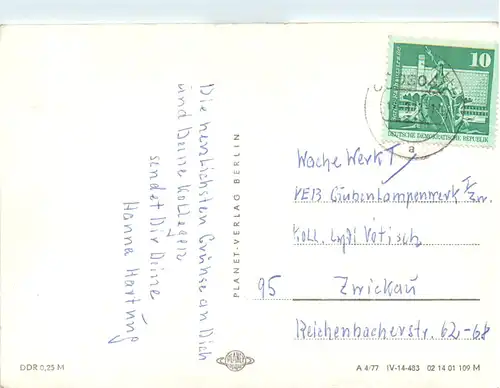 Die herzlichsten Grühse an Dich
und Deine Kollegen
sendet Dir Deine
Hanna Hartung
PLANET-VERLAG BERLIN
10
DEUTSCHE DEMOKRATISCHE REPUBLIK
a
Wache Werk I
VEB Grubenlampenwerk
Koll. Vötisch
95 Zwickau
Reichenbacherstr. 62-68
DDR 0,25 M
PLANET
A 4/77 IV-14-483 02 14 01 109 M